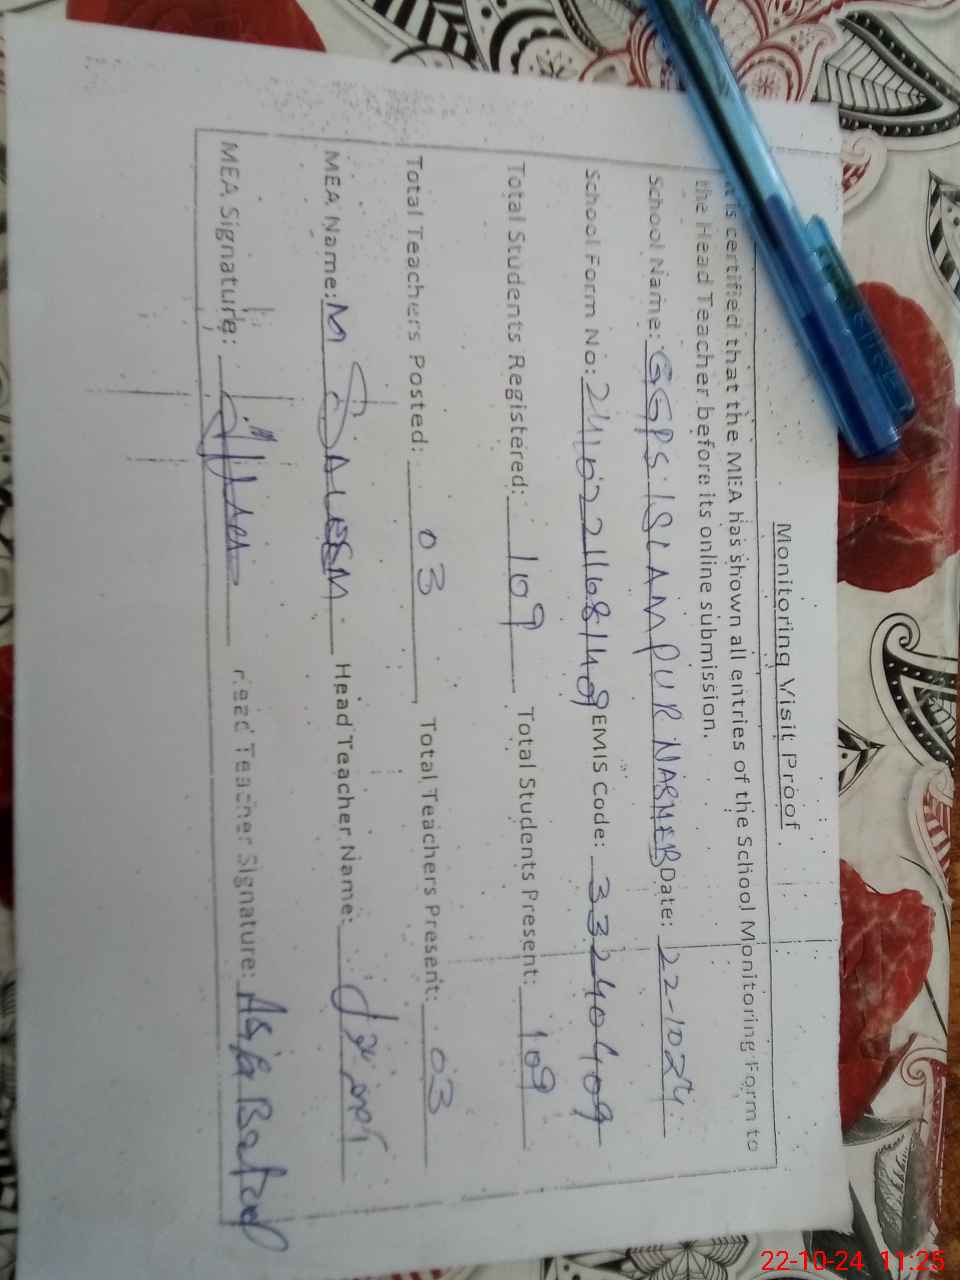 Monitoring Visit Proof
It is certified that the MEA has shown all entries of the School Monitoring Form to
the Head Teacher before its online submission.
School Name: GGPS ISLAMPUR Date: 22-1024
School Form No: EMIS Code: 33240409
Total Students Registered: 109 Total Students Present: 109
Total Teachers Posted: 03 Total Teachers Present: 03
MEA Name: M SALEEM Head Teacher Name:
MEA Signature: Head Teacher Signature: Asifa Batool
22-10-24 11:25